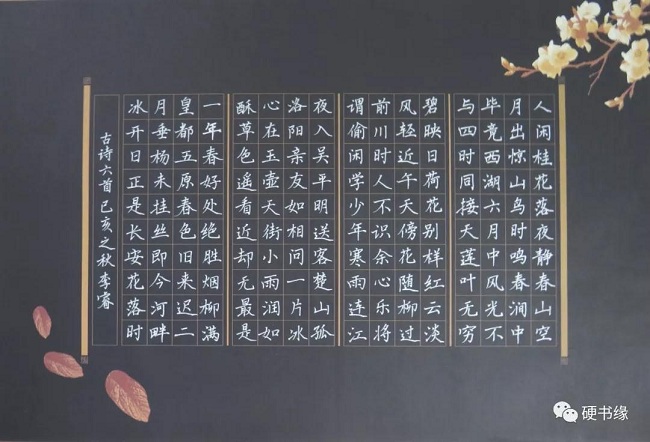 人闲桂花落夜静春山空
月出惊山鸟时鸣春涧中
毕竟西湖六月中风光不
与四时同接天莲叶无穷
碧映日荷花别样红云淡
风轻近午天傍花随柳过
前川时人不识余心乐将
谓偷闲学少年寒雨连江
夜入吴平明送客楚山孤
洛阳亲友如相问一片冰
心在玉壶天街小雨润如
酥草色遥看近却无最是
一年春好处绝胜烟柳满
皇都五原春色旧来迟二
月垂杨未挂丝即今河畔
冰开日正是长安花落时
古诗六首 己亥之秋 李睿
硬书缘